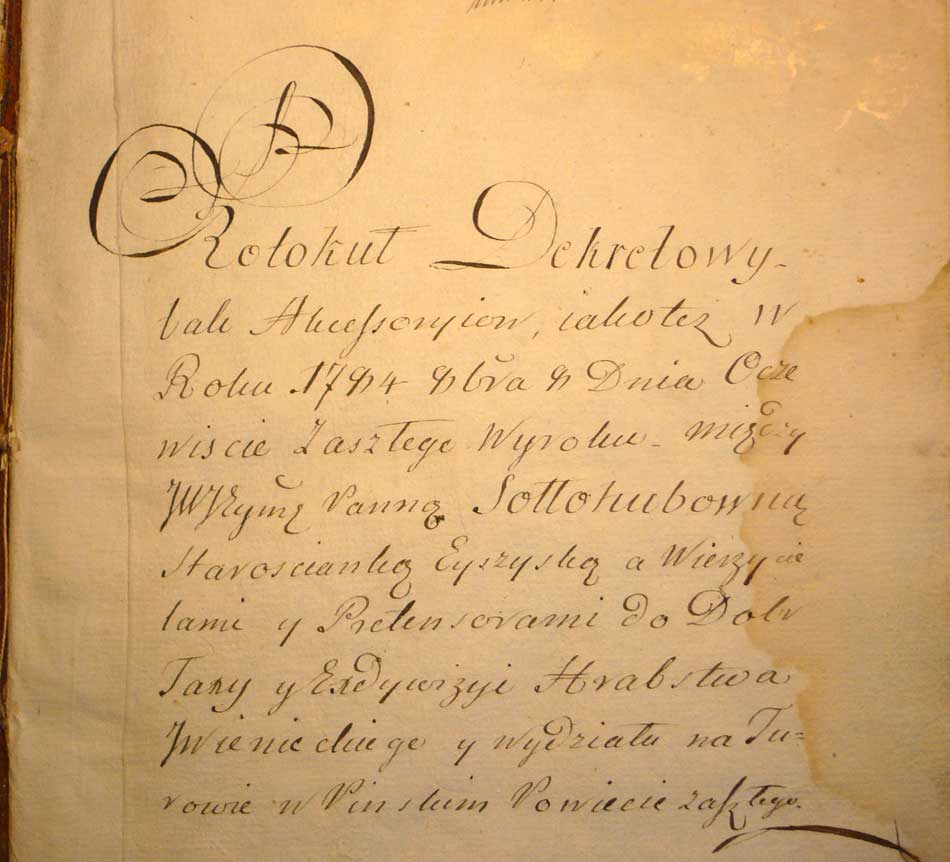 Protokuł Dekretowy
tak Akcessoryiow, iakotez w
Roku 1784 8bra 8 Dnia Ocze
wiscie Zaszłego Wyroku między
Panną Sołłohubowną
Starościanką Eyszyską a Wierzycie
lami y Pretensorami do Dobr
Taxy y Exdywizyi Hrabstwa
Iwienieckiego y wydziału na Tu=
rowie w Pinskim Powiecie zaszłego.